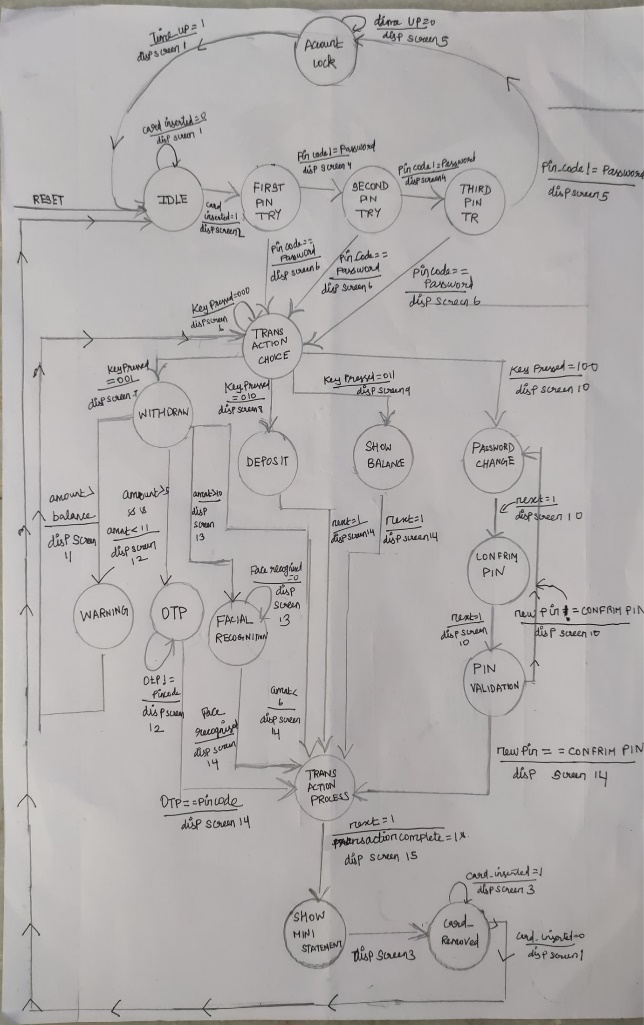 Time UP = 1
disp screen 1
Time UP=0
disp screen 5
Account
Lock
card inserted=0
disp screen 1
RESET
IDLE
card
inserted=1
disp screen 2
FIRST
PIN
TRY
Pin code != Password
disp screen 4
SECOND
PIN
TRY
Pin code != Password
disp screen 4
THIRD
PIN
TR
Pin-code != Password
disp screen 5
Pin code==
Password
disp screen 6
Pin Code==
Password
disp screen 6
Pin code==
Password
disp screen 6
Key Pressed=000
disp screen
6
TRANS
ACTION
CHOICE
Key Pressed
=001
disp screen 7
Key Pressed
=010
disp screen 8
Key Pressed=011
disp screen 9
Key Pressed=100
disp screen 10
WITHDRAW
DEPOSIT
SHOW
BALANCE
PASSWORD
CHANGE
amount>
balance
disp screen
11
amount>5
&&
amnt<11
disp screen
12
amnt>10
disp
screen
13
next=1
disp screen 14
next=1
disp screen 14
next=1
disp screen 10
CONFRIM
PIN
WARNING
OTP
FACIAL
RECOGNITION
Face recognised
=0
disp
screen
13
next=1
disp screen
10
new pin != CONFRIM PIN
disp screen 10
PIN
VALIDATION
OTP !=
Pincode
disp screen
12
Face
recognised
disp screen
14
amnt<
6
disp screen
14
new Pin == CONFRIM PIN
disp screen 14
TRANS
ACTION
PROCESS
OTP==Pincode
disp screen 14
next=1
transaction complete=1
disp screen 15
SHOW
MINI
STATEMENT
disp screen3
card_inserted=1
disp screen 3
Card_
Removed
card_inserted=0
disp screen 1